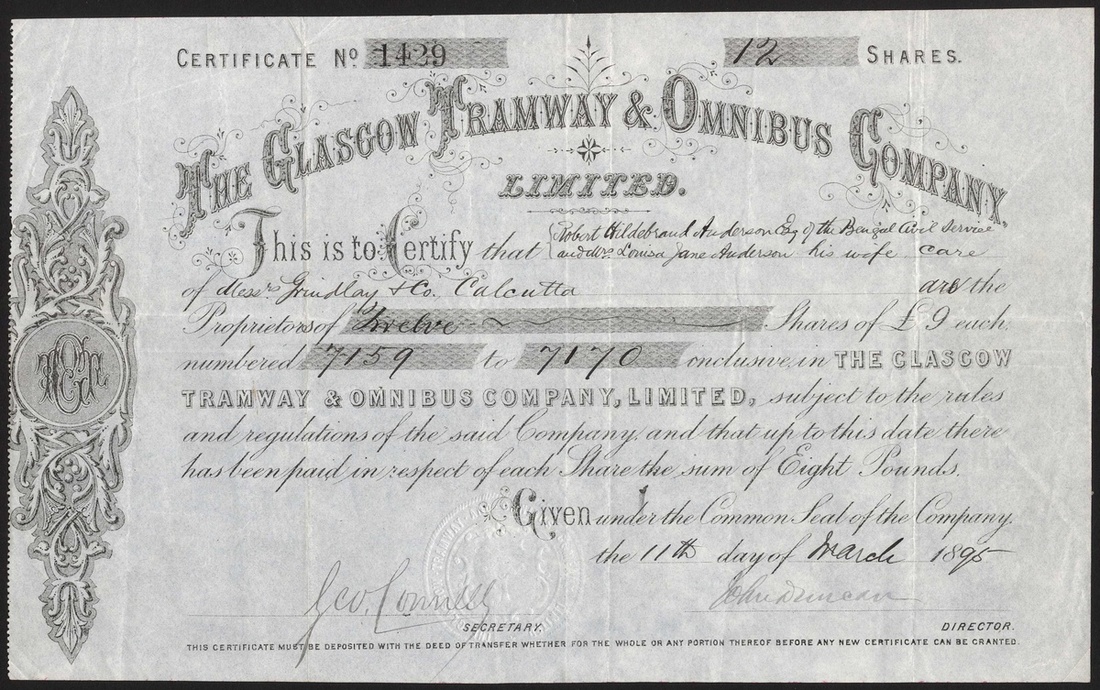 CERTIFICATE No. 1429 12 SHARES.
THE GLASGOW TRAMWAY & OMNIBUS COMPANY,
LIMITED.
This is to Certify that Robert Hildebrand Anderson Esq of the Bengal Civil Service
and Mrs Louisa Jane Anderson his wife care
of Messrs Grindlay & Co. Calcutta are the
Proprietors of Twelve Shares of £9 each
numbered 7159 to 7170 inclusive, in THE GLASGOW
TRAMWAY & OMNIBUS COMPANY, LIMITED, subject to the rules
and regulations of the said Company, and that up to this date there
has been paid, in respect of each Share the sum of Eight Pounds.
Given under the Common Seal of the Company.
the 11th day of March 1895
Geo. Connell John Duncan
SECRETARY. DIRECTOR.
THIS CERTIFICATE MUST BE DEPOSITED WITH THE DEED OF TRANSFER WHETHER FOR THE WHOLE OR ANY PORTION THEREOF BEFORE ANY NEW CERTIFICATE CAN BE GRANTED.